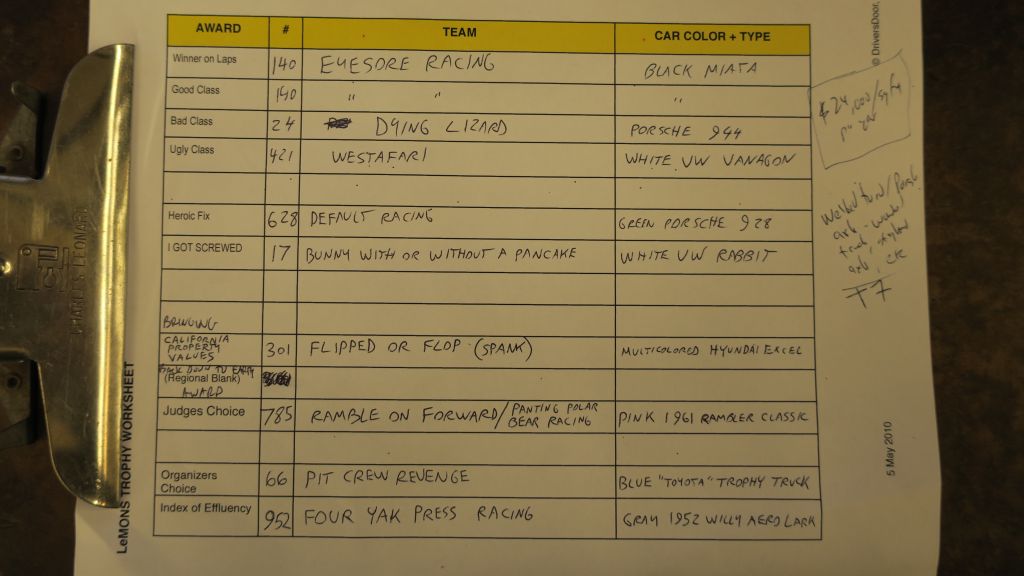 AWARD # TEAM CAR COLOR + TYPE
Winner on Laps 140 EYESORE RACING BLACK MIATA
Good Class 140 " " "
Bad Class 24 DYING LIZARD PORSCHE 944
Ugly Class 421 WESTAFARI WHITE VW VANAGON
Heroic Fix 628 DEFAULT RACING GREEN PORSCHE 928
I GOT SCREWED 17 BUNNY WITH OR WITHOUT A PANCAKE WHITE VW RABBIT
BRINGING
CALIFORNIA
PROPERTY
VALUES 301 FLIPPED OR FLOP (SPANK) MULTICOLORED HYUNDAI EXCEL
BACK DOWN TO EARTH
(Regional Blank)
AWARD
Judges Choice 785 RAMBLE ON FORWARD/PANTING POLAR
BEAR RACING PINK 1961 RAMBLER CLASSIC
Organizers
Choice 66 PIT CREW REVENGE BLUE "TOYOTA" TROPHY TRUCK
Index of Effluency 952 FOUR YAK PRESS RACING GRAY 1952 WILLY AERO LARK
LeMONS TROPHY WORKSHEET
5 May 2010
© DriversDoor,
$24,000/sq ft
CHARLES LEONARD